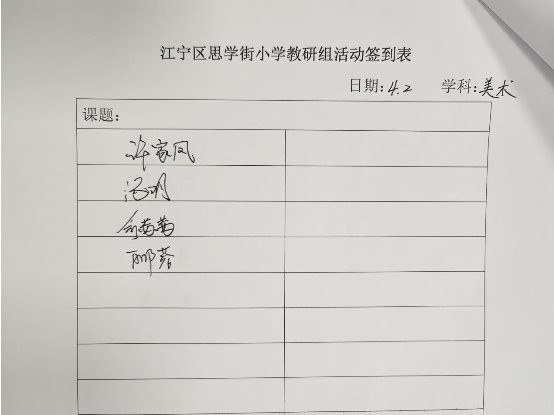 江宁区思学街小学教研组活动签到表
日期:4.2 学科:美术
课题:
许家凤
冯明
俞茜茜
邴蓉